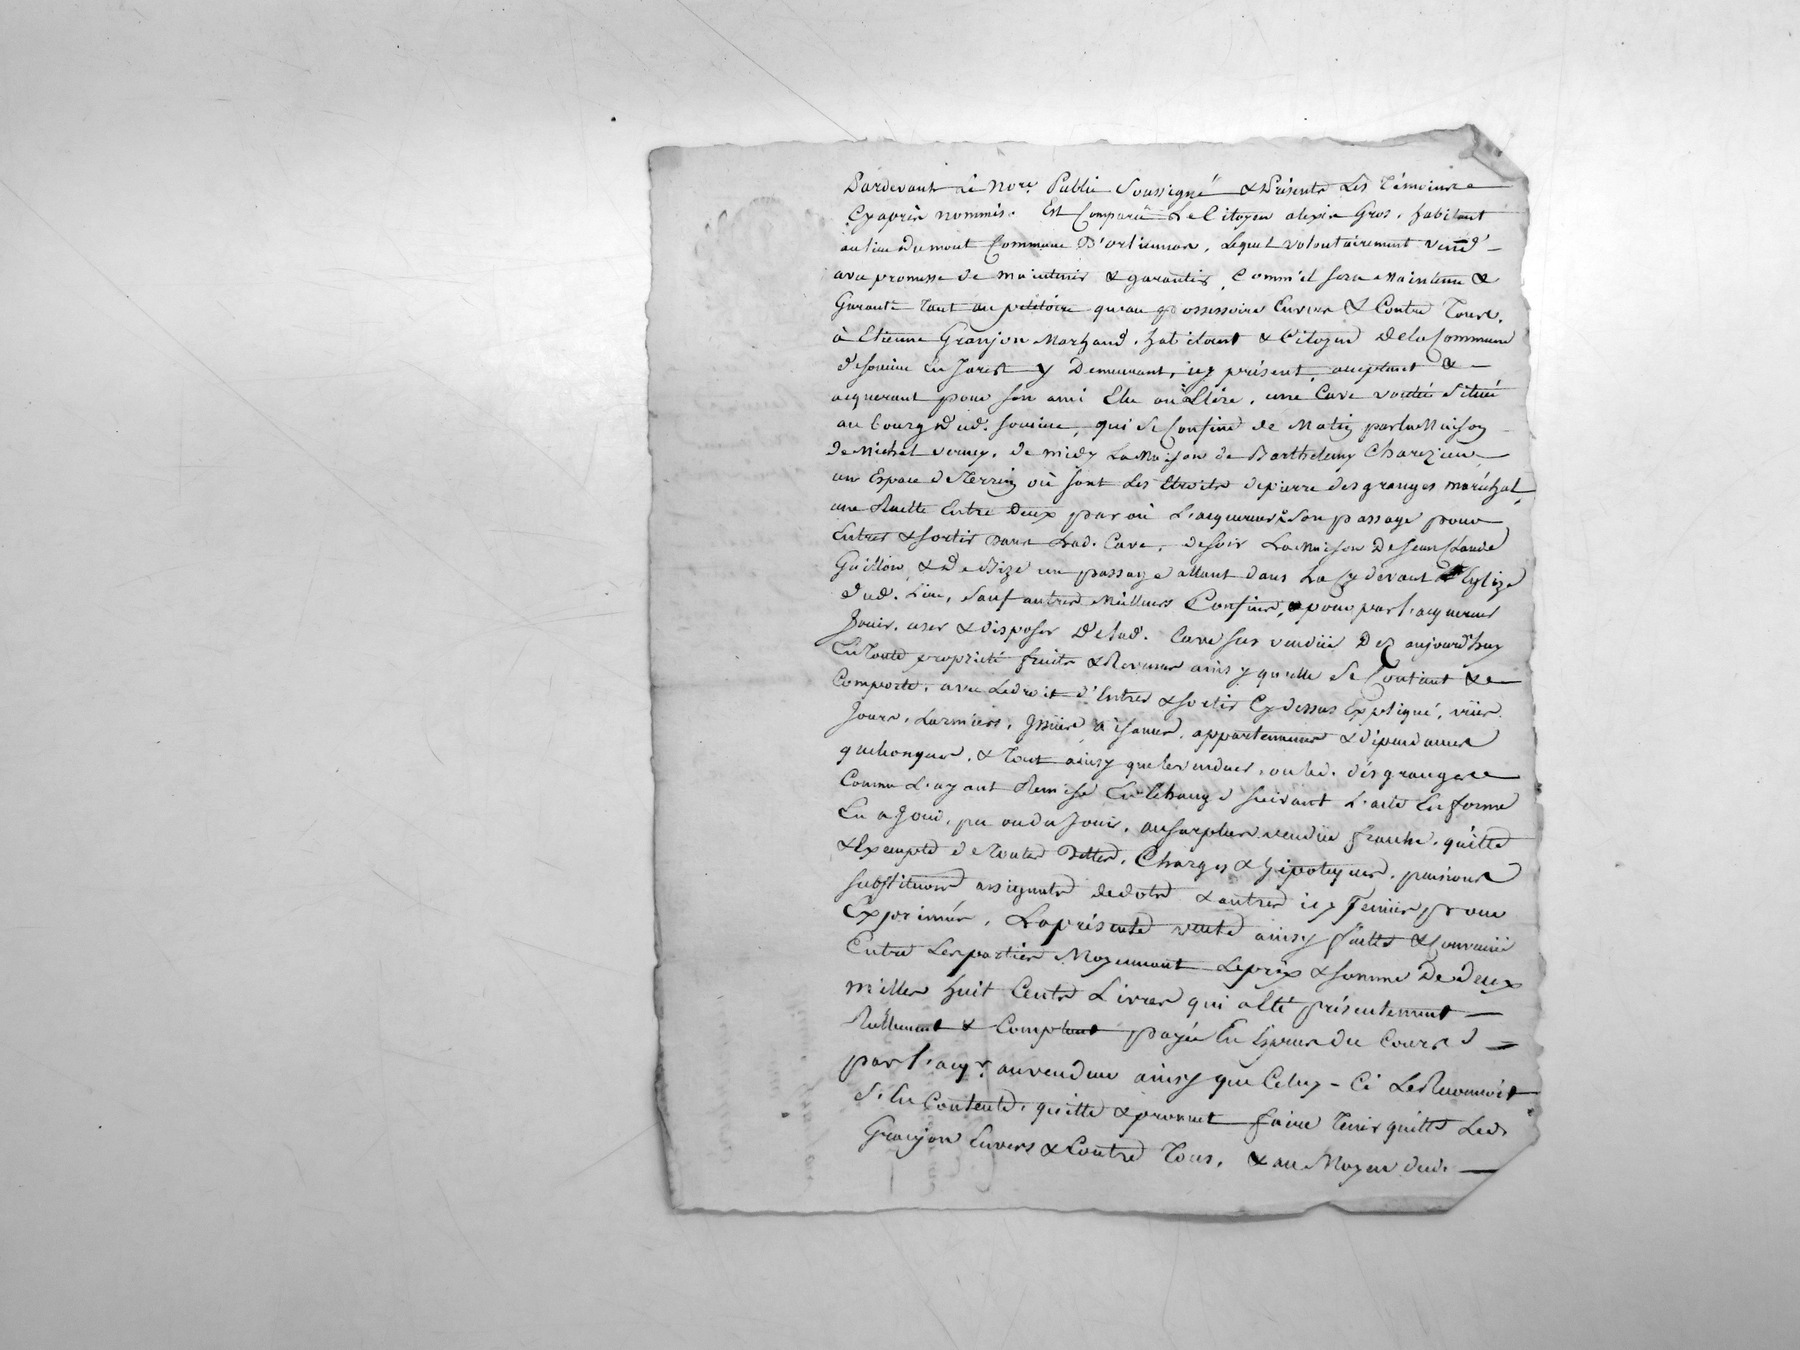 Pardevant le No.re Public Soussigné & Présents Les Témoins
Cyaprès nommés. Est Comparû Le Citoyen alexis Gros, habitant
au lieu Dumont Commune D'orliennas, Lequel volontairement vend
avec promesse de maintenir & garantir, Comm'il sera Maintenu &
Garanti tant au petitoire qu'au possessoire Envers & Contre Tous,
à Etienne Granjon Marchand, habitant & Citoyen Dela Commune
deSoucieu En Jarest y Demeurant, icy présent, acceptant &
acquerant pour son ami Elu ou à Elire, une Cave voutée Située
au bourg dud. Soucieu, qui Se Confine de Matin par la Maison
de Michel verney, de midy La Maison de Barthelemy Charezieu
un Espace deTerrein où sont Les de pierre desgranges maréchal
une Ruelle Entre Deux par où L'acquereur à Son passage pour
Entrer & sortir dans Lad. Cave, de soir La Maison De Jean Claude
Guillon, & De Bize un passage allant dans La Cy devant Eglize
dud. Lieu, Sauf autres Meilleurs Confins, pour par l'acquereur
Jouir, user & disposer De lad. Cave sus vendüe Dez aujourd'huy
En Toute propriété fruits & Revenus ainsy qu'elle Se Contient & Se
Comporte, avec Le droit d'Entrer & sortir Cy dessus Expliqué, vües
Jours, Larmiers, Issües, aisances, appartenances & dépendances
quelconques, & Tout ainsy que le vendeur, ou led. desgranges
Comme L'ayant Remise En Echange suivant L'acte En forme
En a Joui, pu ou du Jouir, au surplus vendüe franche, quitte
& Exempte de Toutes Dettes, Charges & hipoteques, pensions
substitutions assignats de dots & autres icy Tenües pour
Exprimées, La présente vente ainsy faite & Convenüe
Entre Les parties Moyennant Le prix & somme De Deux
Milles huit Cents Livres qui a Eté présentement
Réellement & Comptant payée En Especes du Cours
par l'acq.r au vendeur ainsy que Celuy-Ci Le Reconnoit
S'En Contente, quitte & promet faire Tenir quitte Led.
Granjon Envers & Contre Tous, & au Moyen dud.